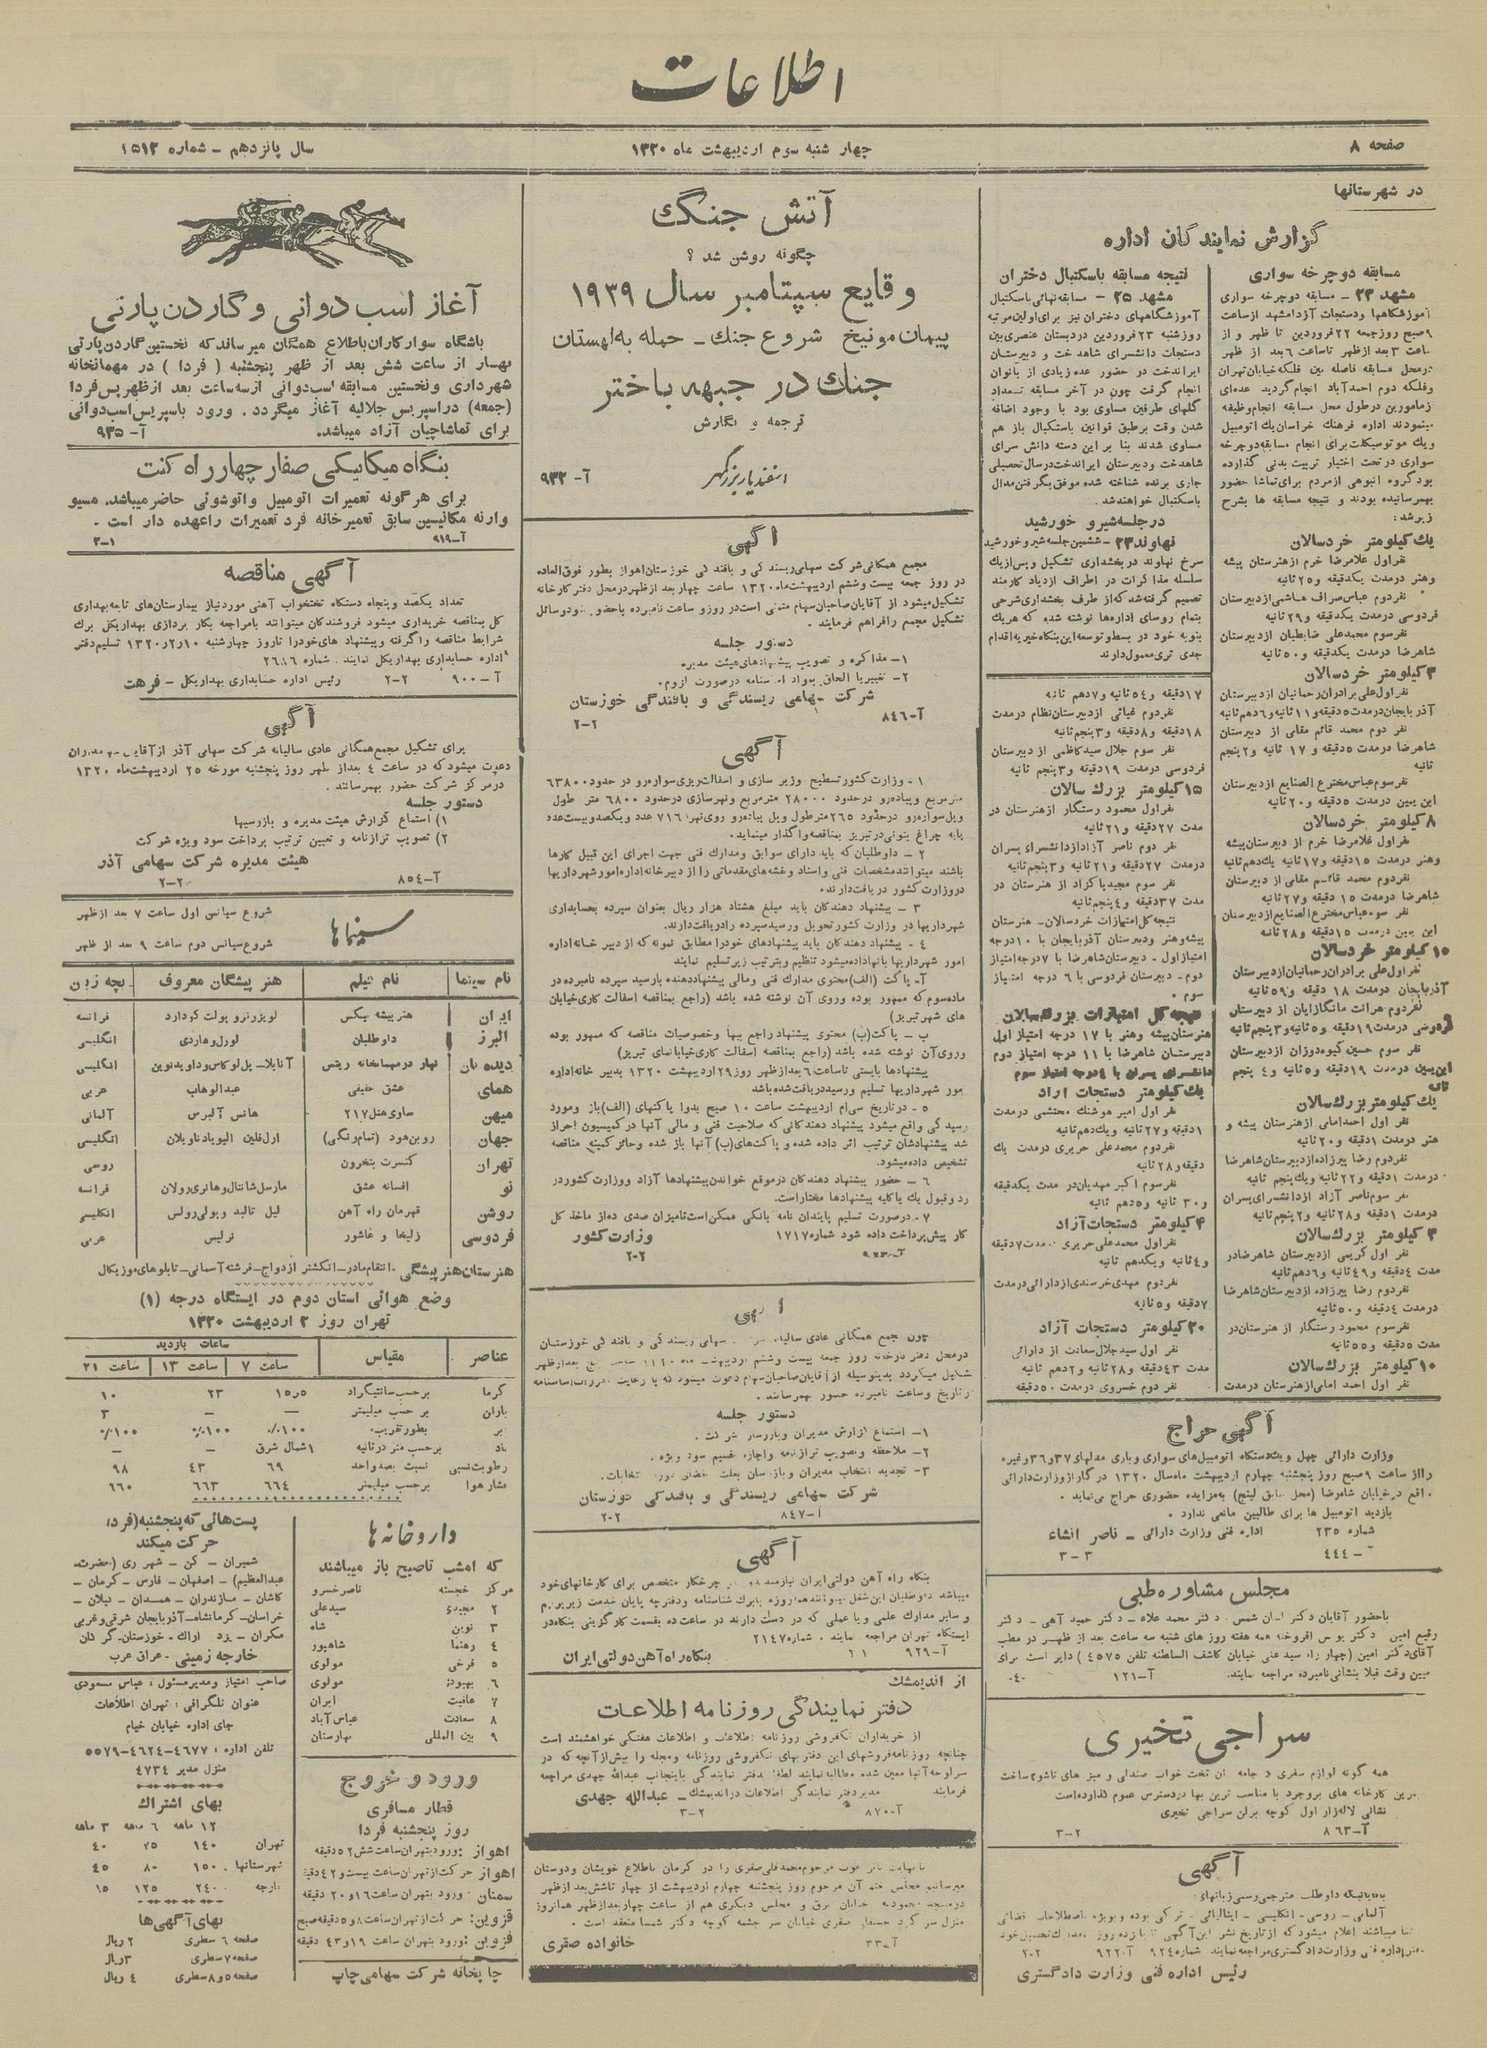 اطلاعات
صفحه ۸
چهار شنبه سوم اردیبهشت ماه ۱۳۲۰
سال پانزدهم - شماره ۱۵۱۲
در شهرستانها
گزارش نمایندگان اداره
مسابقه دوچرخه سواری
مشهد ۲۳ - مسابقه دوچرخه سواری
آموزشگاهها ودستجات آزاد مشهد ازساعت
۹ صبح روزجمعه ۲۲ فروردین تا ظهر و از
ساعت ۳ بعد ازظهر تاساعت ۶ بعد از ظهر
درمحل مسابقه فاصله بین فلکه خیابان تهران
وفلکه دوم احمدآباد انجام گردید عده‌ای
زمامورین درطول محل مسابقه انجام وظیفه
مینمودند اداره فرهنگ خراسان یک اتومبیل
ویک موتوسیکلت برای انجام مسابقه دوچرخه
سواری در تحت اختیار تربیت بدنی گذارده
بود گروه انبوهی از مردم برای تماشا حضور
بهمرسانیده بودند و نتیجه مسابقه ها بشرح
زیرشد:
یک کیلومتر خردسالان
نفراول غلامرضا خرم ازهنرستان پیشه
وهنر درمدت یکدقیقه و۲۵ ثانیه
نفردوم عباس صراف هاشمی ازدبیرستان
فردوسی درمدت یکدقیقه و۲۹ ثانیه
نفرسوم محمدعلی ضابطیان ازدبیرستان
شاهرضا درمدت یکدقیقه و۵۰ ثانیه
۳ کیلومتر خردسالان
نفراول علی برادران رحمانیان ازدبیرستان
آذربایجان درمدت ۵ دقیقه و۱۱ ثانیه و۶ دهم ثانیه
نفر دوم محمد قائم مقامی از دبیرستان
شاهرضا درمدت ۵ دقیقه و ۱۷ ثانیه و۲ پنجم
ثانیه
نفرسوم عباس مخترع الصنایع ازدبیرستان
ابن یمین درمدت ۵ دقیقه و۲۰ ثانیه
۸ کیلومتر خردسالان
نفر اول غلامرضا خرم از دبیرستان پیشه
وهنر درمدت ۱۵ دقیقه و۱۷ ثانیه یک دهم ثانیه
نفردوم محمد قائم مقامی از دبیرستان
شاهرضا درمدت ۱۵ دقیقه و۲۷ ثانیه
نفر سوم عباس مخترع الصنایع ازدبیرستان
ابن یمین درمدت ۱۵ دقیقه و۲۸ ثانیه
۱۰ کیلومتر خردسالان
نفراول علی برادران رحمانیان ازدبیرستان
آذربایجان درمدت ۱۸ دقیقه و۵۹ ثانیه
نفردوم هرانت مانگازایان از دبیرستان
فردوسی درمدت ۱۹ دقیقه و۵ ثانیه و۳ پنجم ثانیه
نفر سوم حسین کیوه‌دوزان از دبیرستان
ابن یمین درمدت ۱۹ دقیقه و۵ ثانیه و۴ پنجم
ثانیه
یک کیلومتر بزرک سالان
نفر اول احمدامامی ازهنرستان پیشه و
هنر درمدت ۱ دقیقه و۲۰ ثانیه
نفردوم رضا پیرزاده ازدبیرستان شاهرضا
درمدت ۱ دقیقه و۲۲ ثانیه ویک پنجم ثانیه
نفر سوم ناصر آزاد ازدانشسرای پسران
درمدت ۱ دقیقه و۲۸ ثانیه و۲ پنجم ثانیه
۳ کیلومتر بزرک سالان
نفر اول کریمی ازدبیرستان شاهرضادر
مدت ۴ دقیقه و۴۹ ثانیه و۶ دهم ثانیه
نفردوم رضا پیرزاده ازدبیرستان شاهرضا
درمدت ۴ دقیقه و۵۰ ثانیه
نفرسوم محمود رستگار از هنرستان در
مدت ۵ دقیقه و۵۵ ثانیه
۱۰ کیلومتر بزرک سالان
نفر اول احمد امامی ازهنرستان درمدت
نتیجه مسابقه باسکتبال دختران
مشهد ۲۵ - مسابقه نهائی باسکتبال
آموزشگاههای دختران نیز برای اولین مرتبه
روزشنبه ۲۳ فروردین دردبستان عنصری بین
دستجات دانشسرای شاهدخت و دبیرستان
ایراندخت در حضور عده زیادی از بانوان
انجام گرفت چون در آخر مسابقه تعداد
گلهای طرفین مساوی بود با وجود اضافه
شدن وقت برطبق قوانین باستکبال باز هم
مساوی شدند بنا بر این دسته دانش سرای
شاهدخت ودبیرستان ایراندخت درسال تحصیلی
جاری برنده شناخته شده موفق بگرفتن مدال
باسکتبال خواهندشد.
درجلسه شیرو خورشید
نهاوند ۲۳ - ششمین جلسه شیروخورشید
سرخ نهاوند دربخشداری تشکیل وپس ازیک
سلسله مذاکرات در اطراف ازدیاد کارمند
تصمیم گرفته شد که از طرف بخشداری شرحی
بتمام روسای اداره‌ها نوشته شده که هریک
بنوبه خود در بسط وتوسعه این بنگاه خیریه اقدام
جدی تری معمول دارند
۱۷ دقیقه و۵۴ ثانیه و۷ دهم ثانیه
نفردوم غیاثی ازدبیرستان نظام درمدت
۱۸ دقیقه و۸ دقیقه و۳ پنجم ثانیه
نفر سوم جلال سیدکاظمی از دبیرستان
فردوسی درمدت ۱۹ دقیقه و۳ پنجم ثانیه
۱۵ کیلومتر بزرک سالان
نفراول محمود رستگار ازهنرستان در
مدت ۲۷ دقیقه و۲۱ ثانیه
نفر دوم ناصر آزادازدانشسرای پسران
درمدت ۲۷ دقیقه و۲۱ ثانیه و۳ پنجم ثانیه
نفر سوم مجید پاکزاد از هنرستان در
مدت ۳۷ دقیقه و۴ پنجم ثانیه
نتیجه کل امتیازات خردسالان - هنرستان
پیشه وهنر ودبیرستان آذربایجان با ۱۰ درجه
امتیازاول - دبیرستان شاهرضا با ۷ درجه امتیاز
دوم - دبیرستان فردوسی با ۶ درجه امتیاز
سوم .
نتیجه کل امتیازات بزرک سالان
هنرستان پیشه وهنر با ۱۷ درجه امتیاز اول
دبیرستان شاهرضا با ۱۱ درجه امتیاز دوم
دانشسرای پسران با ۴ درجه امتیاز سوم
یک کیلومتر دستجات آزاد
نفر اول امیر هوشنگ محتشمی درمدت
۱ دقیقه و۲۷ ثانیه ویک دهم ثانیه
نفردوم محمدعلی حریری درمدت یک
دقیقه و۲۸ ثانیه
نفرسوم اکبر مهدیان در مدت یکدقیقه
و ۳۰ ثانیه و۵ دهم ثانیه
۴ کیلومتر دستجات آزاد
نفراول محمدعلی حریری درمدت ۷ دقیقه
و۴ ثانیه ویکدهم ثانیه
نفردوم مهدی خرسندی ازدارائی درمدت
۷ دقیقه و۵ ثانیه
۲۰ کیلومتر دستجات آزاد
نفر اول سیدجلال سعادت از دارائی
مدت ۴۳ دقیقه و۲۸ ثانیه و۲ دهم ثانیه
نفر دوم خسروی درمدت ۵۰ دقیقه
آگهی حراج
وزارت دارائی چهل ویک دستگاه اتومبیل‌های سواری وباری مدلهای ۳۷و۳۶ وغیره
رااز ساعت ۹ صبح روز پنجشنبه چهارم اردیبهشت ماه سال ۱۳۲۰ در گاراژ وزارت دارائی
واقع درخیابان شاهرضا (محل سابق لینچ) به‌مزایده حضوری حراج می‌نماید .
بازدید اتومبیل ها برای طالبین مانعی ندارد .
شماره ۲۳۵ اداره فنی وزارت دارائی - ناصر انشاء
۴۴۴ ۳-۳
مجلس مشاوره طبی
باحضور آقایان دکتر شمس . دکتر محمد علاء - دکتر حمید آهی - دکتر
رفیع امین دکتر یونس افروخته همه هفته روز های شنبه سه ساعت بعد از ظهر در مطب
آقای دکتر امین (چهار راه سید علی خیابان کاشف السلطنه تلفن ۴۵۷۵ ) دایر است برای
تعیین وقت قبلا بنشانی نامبرده مراجعه نمایند. آ-۱۲۱
سراجی تخیری
همه گونه لوازم سفری و جامه دان تخت خواب صندلی و میز های تاشو ساخت
بهترین کارخانه های بروجرد با مناسب ترین بها دردسترس عموم گذارده‌است
نشانی لاله‌زار اول کوچه برلن سراجی تخیری
آ-۸۶۳ ۳-۲
آگهی
باشخاصیکه داوطلب مترجمی رسمی زبانهای:
آلمانی - روسی - انگلیسی - ایتالیائی - ترکی بوده و بویژه باصطلاحات قضائی
آشنا میباشند اعلام میشود که ازتاریخ نشر این آگهی تا پانزده روز بامدارک تحصیلی خود
باداره فنی وزارت دادگستری مراجعه نمایند شماره ۹۲۴ آ-۹۲۲ ۲-۲
رئیس اداره فنی وزارت دادگستری
آتش جنگ
چگونه روشن شد ؟
وقایع سپتامبر سال ۱۹۳۹
پیمان مونیخ شروع جنک - حمله به‌لهستان
جنک در جبهه باختر
ترجمه و نگارش
اسفندیار بزرگمهر آ- ۹۳۲
آگهی
مجمع همگانی شرکت سهامی ریسندگی و بافندگی خوزستان اهواز بطور فوق‌العاده
در روز جمعه بیست وششم اردیبهشت‌ماه ۱۳۲۰ ساعت چهاربعد ازظهر درمحل دفتر کارخانه
تشکیل میشود از آقایان صاحبان سهام متمنی است در روزو ساعت نامبرده باحضور خود وسائل
تشکیل مجمع رافراهم فرمایند .
دستور جلسه
۱- مذاکره و تصویب پیشنهادهای هیئت مدیره
۲- تغییر یا الحاق مواد اساسنامه درصورت لزوم.
شرکت سهامی ریسندگی و بافندگی خوزستان
آ-۸۴۶ ۲-۲
آگهی
۱ - وزارت کشورتسطیح وزیر سازی و اسفالت‌ریزی سواره‌رو در حدود ۶۳۸۰۰
مترمربع وپیاده‌رو درحدود ۲۸۰۰۰ مترمربع ونهرسازی درحدود ۶۸۰۰ متر طول
وپل سواره‌رو درحدود ۲۶۵ مترطول وپل پیاده‌رو روی نهر۱ ۷۱۶ عدد ویکصدوبیست عدد
پایه چراغ بتونی در تبریز بمناقصه واگذار مینماید.
۲ - داوطلبان که باید دارای سوابق ومدارک فنی جهت اجرای این قبیل کارها
باشند میتوانند مشخصات فنی واسناد ونقشه‌های مقدماتی را از دبیرخانه اداره امور شهرداریها
دروزارت کشور دریافت دارند.
۳ - پیشنهاد دهندکان باید مبلغ هشتاد هزار ریال بعنوان سپرده بحسابداری
شهرداریها در وزارت کشور تحویل ورسید سپرده را دریافت دارند.
۴ - پیشنهاد دهندکان باید پیشنهادهای خود را مطابق نمونه که از دبیر خانه اداره
امور شهرداریها بآنها داده میشود تنظیم وبترتیب زیرتسلیم نمایند
آ- پاکت (الف) محتوی مدارک فنی ومالی پیشنهاد دهنده بارسید سپرده نامبرده در
ماده سوم که ممهور بوده وروی آن نوشته شده باشد (راجع بمناقصه اسفالت کاری خیابان
های شهر تبریز)
ب - پاکت(ب) محتوی پیشنهاد راجع ببها وخصوصیات مناقصه که ممهور بوده
وروی آن نوشته شده باشد (راجع بمناقصه اسفالت کاری خیابانهای تبریز)
پیشنهادها بایستی تاساعت ۶ بعدازظهر روز ۲۹ اردیبهشت ۱۳۲۰ بدبیر خانه اداره
امور شهرداریها تسلیم ورسید دریافت شده باشد
۵ - درتاریخ سی‌ام اردیبهشت ساعت ۱۰ صبح بدوا پاکتهای (الف) باز ومورد
رسیدگی واقع میشود پیشنهاد دهندکانی که صلاحیت فنی و مالی آنها در کمیسیون احراز
شد پیشنهادشان ترتیب اثر داده شده و پاکت‌های(ب) آنها باز شده وحائز کمینه مناقصه
تشخیص داده میشود.
۶ - حضور پیشنهاد دهندکان درموقع خواندن پیشنهادها آزاد ووزارت کشور در
رد وقبول یک یا کلیه پیشنهادها مختاراست.
۷ - درصورت تسلیم پایندان نامه بانکی ممکن است تامیزان صدی ده از ماخذ کل
کار پیش پرداخت داده شود شماره ۱۷۱۷ وزارت کشور
آ-۹۲۳ ۲-۲
آگهی
چون مجمع همگانی عادی سالیانه شرکت سهامی ریسندگی و بافندگی خوزستان
درمحل دفتر کارخانه روز جمعه بیست وششم اردیبهشت ماه ۱۳۲۰ ساعت بعدازظهر
تشکیل میگردد بدینوسیله از آقایان صاحبان سهام دعوت میشود که با رعایت مقررات اساسنامه
در تاریخ وساعت نامبرده حضور بهمرسانند.
دستور جلسه
۱- استماع گزارش مدیران وبازرسان شرکت .
۲- ملاحظه وتصویب ترازنامه واجازه تقسیم سود ویژه .
۳- تجدید انتخاب مدیران وبازرسان بعلت انقضای دوره انتخابات.
شرکت سهامی ریسندگی و بافندگی خوزستان
آ-۸۴۷ ۲-۲
آگهی
بنگاه راه آهن دولتی ایران نیازمند چرخکار متخصص برای کارخانهای خود
میباشد داوطلبان این شغل میتوانند همه‌روزه بامدارک شناسنامه ودفترچه پایان خدمت زیرپرچم
و سایر مدارک علمی ویا عملی که در دست دارند در ساعت ده بقسمت کارگزینی بنگاه در
ایستگاه تهران مراجعه نمایند . شماره ۲۱۴۷
آ-۹۲۹ ۲-۱ بنگاه راه آهن دولتی ایران
از اندیمشک
دفتر نمایندگی روزنامه اطلاعات
از خریداران تکفروشی روزنامه اطلاعات و اطلاعات هفتگی خواهشمند است
چنانچه روزنامه فروشهای این دفتر بهای تکفروشی روزنامه ومجله را بیش از آنچه که در
سرلوحه آنها معین شده مطالبه نمایند لطفا بدفتر نمایندگی یا اینجانب عبدالله جهدی مراجعه
فرمایند مدیردفتر نمایندگی اطلاعات در اندیمشک - عبدالله جهدی
آ-۸۷۰ ۳-۲
با نهایت تاثر فوت مرحوم محمدقلی صفری را در کرمان باطلاع خویشان ودوستان
میرسانیم مجلس ختم آن مرحوم روز پنجشنبه چهارم اردیبهشت از چهار تاشش بعد ازظهر
درمسجد خیابان برق و مجلس دیگری هم از ساعت چهاربعدازظهر همانروز
منزل سر کرد صفری خیابان سر چشمه کوچه دکتر شمسا منعقد است .
آ-۳۳ خانواده صفری
آغاز اسب دوانی و گاردن پارتی
باشگاه سوارکاران باطلاع همگان میرساند که نخستین گاردن پارتی
بهار از ساعت شش بعد از ظهر پنجشنبه ( فردا ) در مهمانخانه
شهرداری ونخستین مسابقه اسب‌دوانی از سه ساعت بعد ازظهر پس فردا
(جمعه) دراسپریس جلالیه آغاز میگردد . ورود باسپریس اسب‌دوانی
برای تماشاچیان آزاد میباشد. آ- ۹۳۵
بنگاه میکانیکی صفار چهار راه کنت
برای هرگونه تعمیرات اتومبیل واتوشوئی حاضر میباشد. مسیو
وارنه مکانیسین سابق تعمیرخانه فرد تعمیرات راعهده دار است .
آ-۹۱۹ ۳-۱
آگهی مناقصه
تعداد یکصد وپنجاه دستگاه تختخواب آهنی موردنیاز بیمارستان‌های تابعه بهداری
کل بمناقصه خریداری میشود فروشندکان میتوانند بامراجعه بکار پردازی بهداریکل برک
شرایط مناقصه را گرفته وپیشنهاد های خودرا تاروز چهارشنبه ۱۰ر۲ر۱۳۲۰ تسلیم دفتر
اداره حسابداری بهداریکل نمایند . شماره ۲۶۸۶
آ- ۹۰۰ ۲-۲ رئیس اداره حسابداری بهداریکل - فرهت
آگهی
برای تشکیل مجمع همگانی عادی سالیانه شرکت سهامی آذر از آقایان سهامداران
دعوت میشود که در ساعت ۴ بعداز ظهر روز پنجشنبه مورخه ۲۵ اردیبهشت ماه ۱۳۲۰
درمرکز شرکت حضور بهمرسانند .
دستور جلسه
۱) استماع گزارش هیئت مدیره و بازرسیها
۲) تصویب ترازنامه و تعیین ترتیب پرداخت سود ویژه شرکت
هیئت مدیره شرکت سهامی آذر
آ-۸۵۴ ۲-۲
سینماها
شروع سیانس اول ساعت ۷ بعد ازظهر
شروع سیانس دوم ساعت ۹ بعد از ظهر
نام سینما نام فیلم هنر پیشگان معروف بچه زبان
ایران هنرپیشه سیکس لویزرنرو پولت کودارد فرانسه
البرز داوطلبان لورل وهاردی انگلیسی
دیده‌بان نهار درمهمانخانه ریتس آنابلا - پل لوکاس و داویدنوین انگلیسی
همای عشق حقیقی عبدالوهاب عربی
میهن ساوی‌هتل ۲۱۷ هانس آلبرس آلمانی
جهان روبن هود (تمام‌رنگی) ارل فلین الیویا دناویلان انگلیسی
تهران کنسرت بتخرون روسی
نو افسانه عشق مارسل شانتال و هانری رولان فرانسه
روشن قهرمان راه آهن لیل تالبد و بولی رولس انگلیسی
فردوسی زلیخا و عاشور نرلیس عربی
هنرستان هنرپیشگی - انتقام مادر - انگشتر ازدواج - فرشته آسمانی - تابلوهای موزیکال
وضع هوائی استان دوم در ایستگاه درجه (۱)
تهران روز ۲ اردیبهشت ۱۳۲۰
عناصر مقیاس ساعات بازدید
ساعت ۷ ساعت ۱۳ ساعت ۲۱
گرما برحسب سانتیگراد ۱۵ر۵ ۲۳ ۱۰
باران بر حسب میلیمتر — — ۳
ابر بطور تقریب ۱۰۰٪ ۱۰۰٪ ۱۰۰٪
باد برحسب متر درثانیه ۱ شمال شرق — —
رطوبت نسبی نسبت بصد واحد ۶۹ ۴۳ ۹۸
فشار هوا برحسب میلیمتر ۶۶۴ ۶۶۳ ۶۶۰
داروخانه ها
که امشب تاصبح باز میباشند
مرکز خجسته ناصرخسرو
۲ مجیدی سیدعلی
۳ نوین شاه
۴ رهنما شاهپور
۵ فرخی مولوی
۶ بهبودی مولوی
۷ عافیت ایران
۸ سعادت عباس‌آباد
۹ بین المللی بهارستان
ورود و خروج
قطار مسافری
روز پنجشنبه فردا
اهواز :ورود بتهران ساعت شش ۵۲ دقیقه
اهواز حرکت ازتهران ساعت بیست و۴۲ دقیقه
سمنان - ورود بتهران ساعت ۱۶و۲۰ دقیقه
قزوین: حرکت ازتهران ساعت ۸ و۵ دقیقه صبح
قزوین :ورود بتهران ساعت ۱۹ و۴۳ دقیقه
چاپخانه شرکت سهامی چاپ
پست هائی که پنجشنبه (فردا)
حرکت میکند
شمیران - کن - شهر ری (حضرت
عبدالعظیم) - اصفهان - فارس - کرمان -
کاشان - مازندران - همدان - گیلان -
خراسان - کرمانشاه - آذربایجان شرقی وغربی
مکران - یزد اراک - خوزستان - گرگان
خارجه زمینی - عراق عرب
صاحب امتیاز ومدیرمسئول: عباس مسعودی
عنوان تلگرافی: تهران اطلاعات
جای اداره خیابان خیام
تلفن اداره : ۴۶۷۷-۴۶۲۴-۵۵۷۹
منزل مدیر ۴۷۳۴
بهای اشتراک
۱۲ ماهه ۶ ماهه ۳ ماهه
تهران ۱۴۰ ۷۵ ۴۰
شهرستانها ۱۵۰ ۸۰ ۴۵
خارجه ۲۴۰ ۱۲۵ ۶۵
بهای آگهی‌ها
صفحه ۶ سطری ۲ ریال
صفحه ۷ سطری ۳ ریال
صفحه ۵ و ۸ سطری ۴ ریال